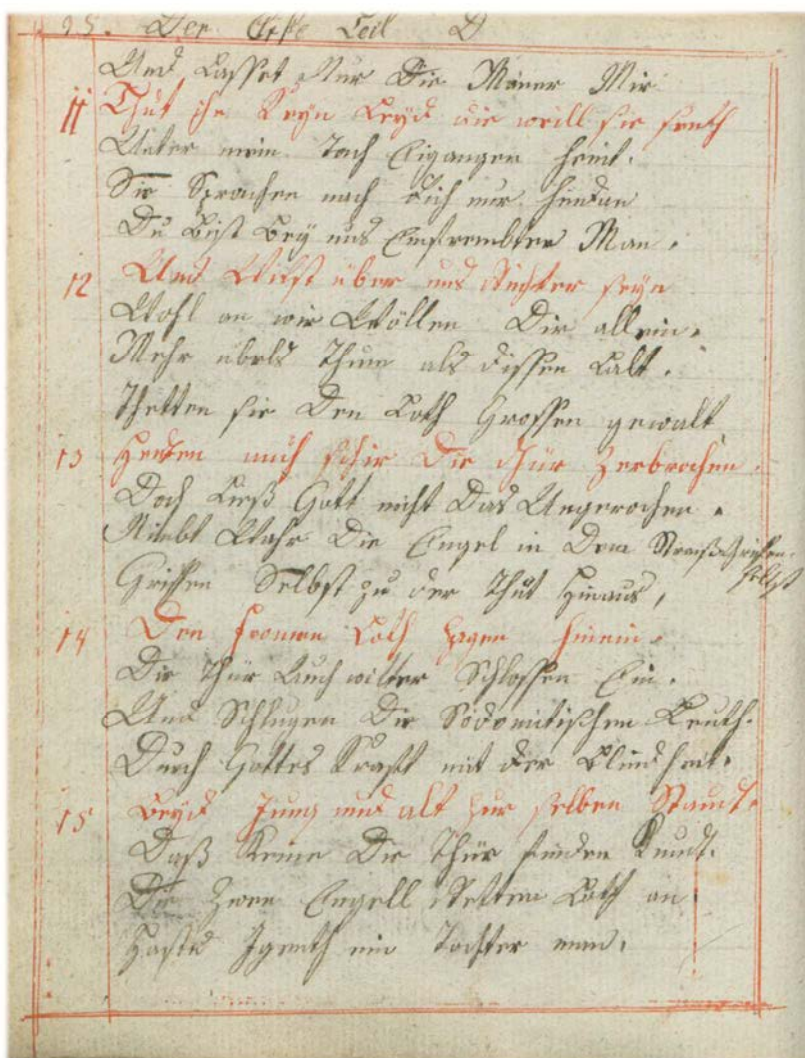 95. Der Erste Teil D
Und Lasset Nur Die Maner Mir
11 Thut ihn Keyn Leyd die weill sie seyth
Unter mein Tach Eigangen heint.
Sie Sprachen nach dich nur hindan
Du Bist Bey uns Einfrembter Man.
12 Und Wilst über uns Richter seyn
Wohl an wir Wöllen Dir allein.
Mehr übels Thun als dissen Balt.
Thetten sie Den Loth Grossen gewalt
13 Hetten auch schir Die thür Zerbrochen.
Doch Ließ Gott nicht Das Ungerochen.
Nimbt Wahr Die Engel in Dem Strauß Griffen
selbst
Griffen Selbst zu der Thür Hinaus,
14 Den fromen Loth Zogen hinein.
Die Thür Auch witter Schlossen Ein.
Und Schlugen Die Sodomitischen Leuth.
Durch Gottes Krafft mit der Blindheit.
15 Beyd Jung und alt zur selben Stundt.
Daß Keine Die Thür finden Kundt.
Die Zwen Engell Retten Loth an.
Hastu Jgenth ein Tochter man.